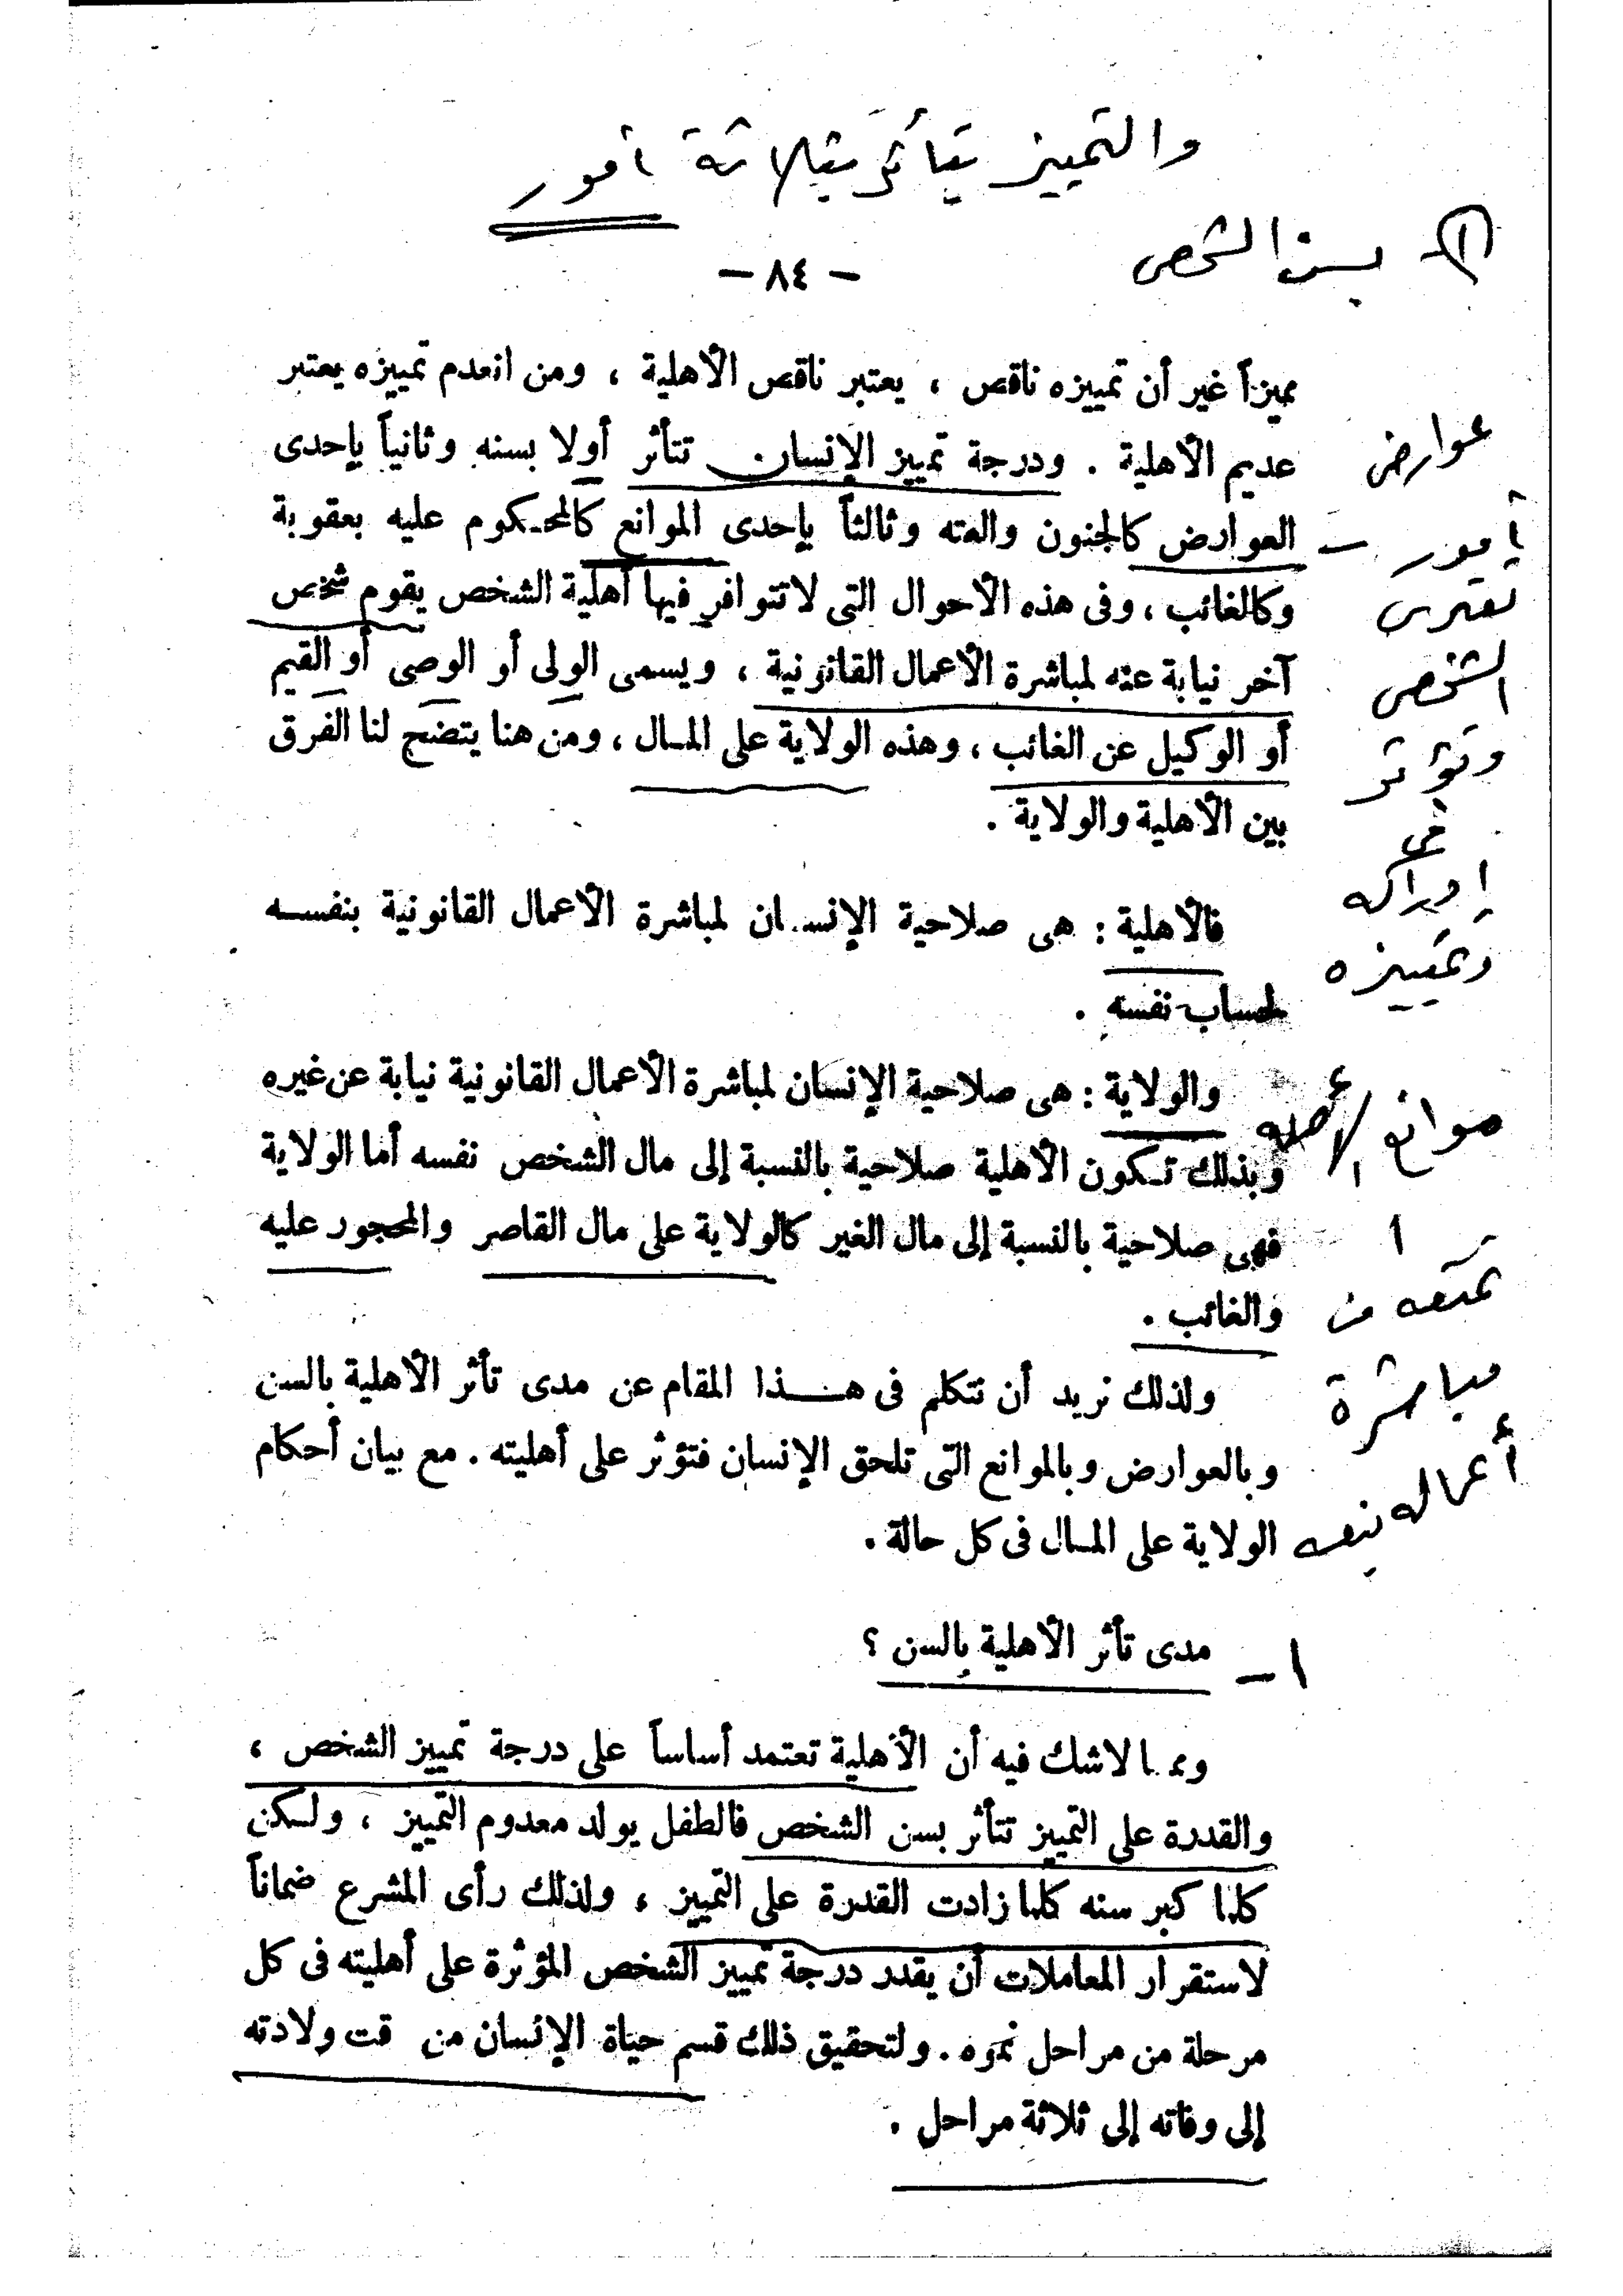 والتمييز يتأثر بثلاثة أمور
١- بسن الشخص
— ٨٤ —
مميزاً غير أن تمييزه ناقص ، يعتبر ناقص الأهلية ، ومن انعدم تمييزه يعتبر
عديم الأهلية . ودرجة تمييز الإنسان تتأثر أولا بسنه وثانياً بإحدى
العوارض كالجنون والعته وثالثاً بإحدى الموانع كالمحكوم عليه بعقوبة
وكالغائب ، وفى هذه الأحوال التى لا تتوافر فيها أهلية الشخص يقوم شخص
آخر نيابة عنه لمباشرة الأعمال القانونية ، ويسمى الولى أو الوصى أو القيم
أو الوكيل عن الغائب ، وهذه الولاية على المال ، ومن هنا يتضح لنا الفرق
بين الأهلية والولاية .
عوارض
أمور —
تعترى
الشخص
وتؤثر
فى
إدراكه
وتمييزه
فالأهلية : هى صلاحية الإنسان لمباشرة الأعمال القانونية بنفسه
لحساب نفسه .
والولاية : هى صلاحية الإنسان لمباشرة الأعمال القانونية نيابة عن غيره
وبذلك تكون الأهلية صلاحية بالنسبة إلى مال الشخص نفسه أما الولاية
فهى صلاحية بالنسبة إلى مال الغير كالولاية على مال القاصر والمحجور عليه
والغائب .
موانع الأهليه
تمنعه من
مباشرة
أعماله بنفسه
ولذلك نريد أن نتكلم فى هذا المقام عن مدى تأثر الأهلية بالسن
وبالعوارض وبالموانع التى تلحق الإنسان فتؤثر على أهليته . مع بيان أحكام
الولاية على المال فى كل حالة .
١ — مدى تأثر الأهلية بالسن ؟
ومما لاشك فيه أن الأهلية تعتمد أساساً على درجة تمييز الشخص ،
والقدرة على التمييز تتأثر بسن الشخص فالطفل يولد معدوم التمييز ، ولكن
كلما كبر سنه كلما زادت القدرة على التمييز ، ولذلك رأى المشرع ضماناً
لاستقرار المعاملات أن يقدر درجة تمييز الشخص المؤثرة على أهليته فى كل
مرحلة من مراحل نموه . ولتحقيق ذلك قسم حياة الإنسان من قت ولادته
إلى وفاته إلى ثلاثة مراحل .